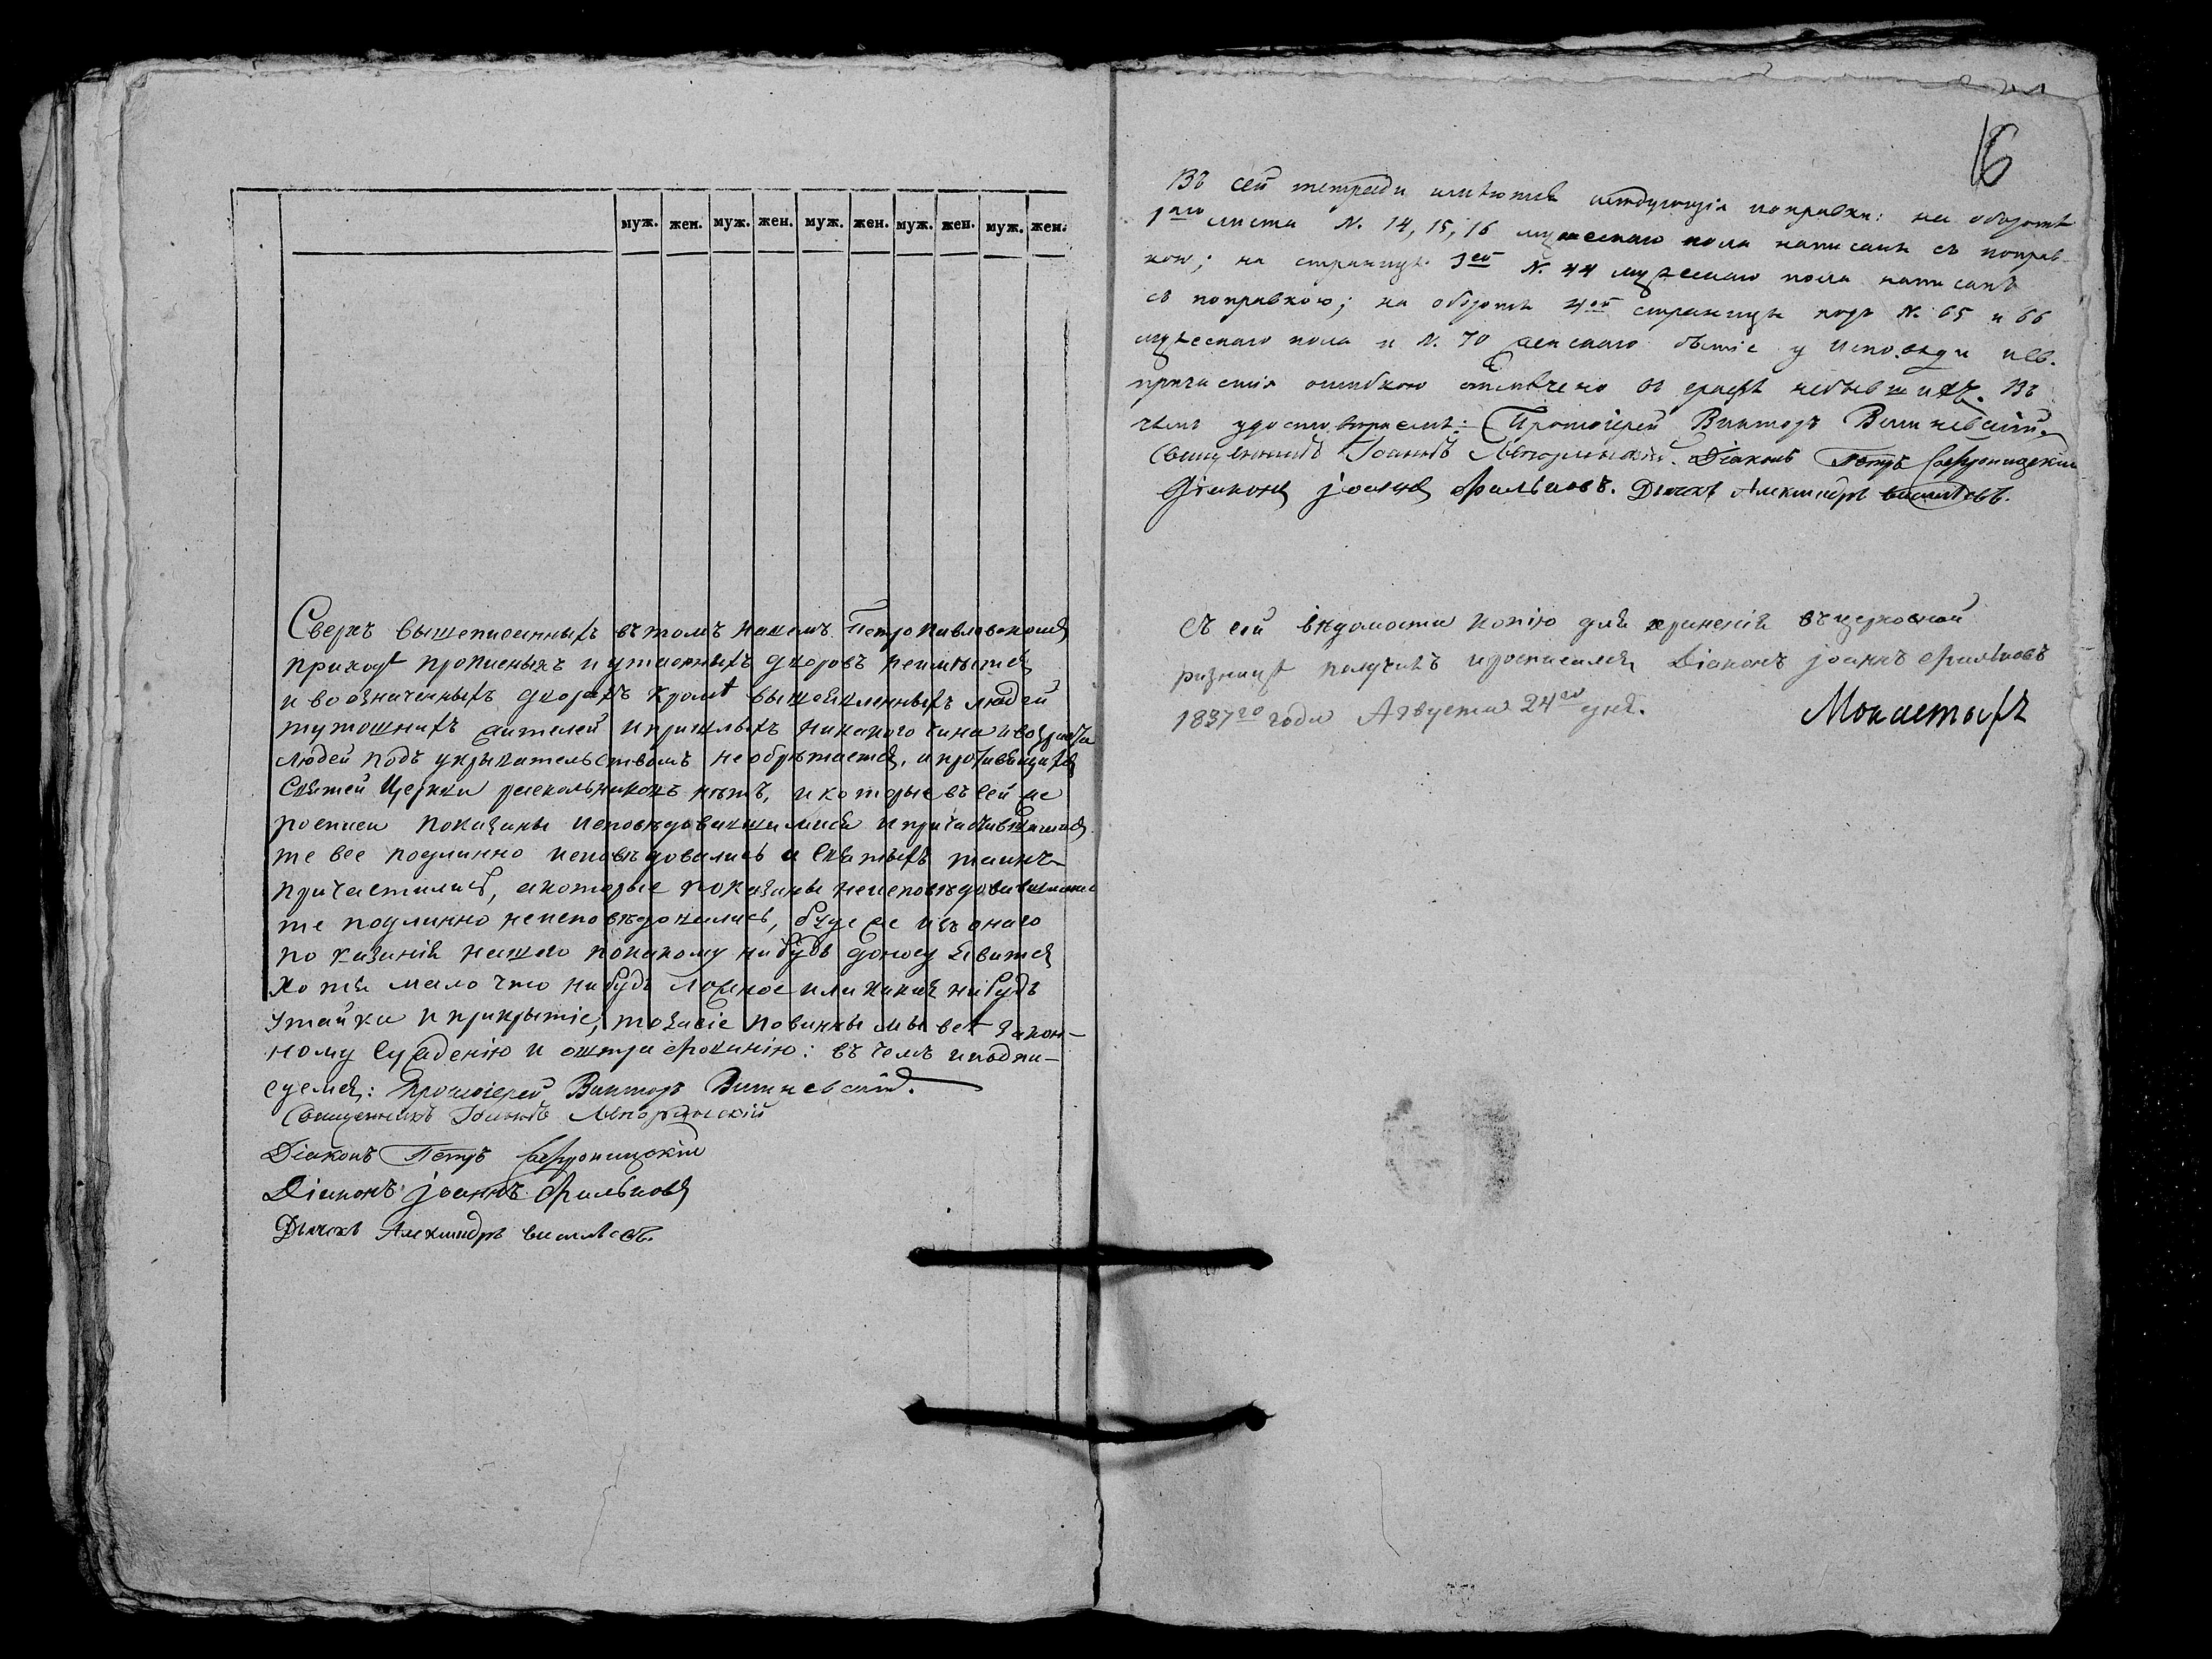 муж. жен. муж. жен. муж. жен. муж. жен. муж. жен.
Сверхъ вышеписанныхъ въ томъ нашемъ Петропавловскомъ
приходѣ прописныхъ и утаенныхъ дворовъ неимѣется
и во означенныхъ дворахъ кромѣ вышеявленныхъ людей
тутошнихъ жителей и пришлыхъ никакого чина и возраста
людей подъ укрывательствомъ необрѣтается, и противящихся
Святей Церкви раскольниковъ нѣтъ, и которые въ сей же
росписи показаны исповѣдовавшимися и причастившимися
те все подлинно исповѣдовались и Святыхъ таинъ
причастились, а которые показаны неисповѣдовавшимися
те подлинно неисповѣдовались, буде же изъ онаго
показанія нашего по какому нибудь доносу явится
хотя мало что нибудь ложное или какая нибудь
утайка и прикрытіе, то за сіе повинны мы всѣ закон-
ному сужденію и оштрафованію: въ чемъ и подпи-
суемся: Протоіерей Викторъ Вишневскій.
Священникъ Іоаннъ
Діаконъ Петръ
Діаконъ Іоаннъ Фальковъ
Дьячекъ Александръ
16
Въ сей тетради имѣются слѣдующія поправки: на оборотѣ
1го листа N. 14, 15, 16 мужескаго пола написаны съ поправ-
кою; на страницѣ 3ей N. 44 мужескаго пола написанъ
съ поправкою; на оборотѣ 4ой страницы подъ N. 65 и 66
мужескаго пола и N. 70 женскаго бытіе у Исповѣди и Св.
причастія ошибкою отмѣчено въ графѣ небывшихъ. Въ
чемъ удостовѣряемъ: Протоіерей Викторъ Вишневскій.
Священникъ Іоаннъ Діаконъ Петръ
Діаконъ Іоаннъ Фальковъ. Дьячекъ Александръ
Съ сей вѣдомости копію для храненія въ церковной
ризницѣ получилъ и росписался Діаконъ Іоаннъ Фальковъ
1837го года Августа 24го дня.